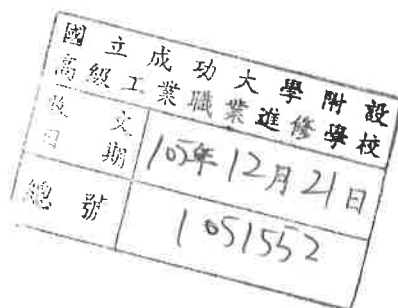 國立成功大學附設
高級工業職業進修學校
收文
日期
105年12月21日
總號
1051552